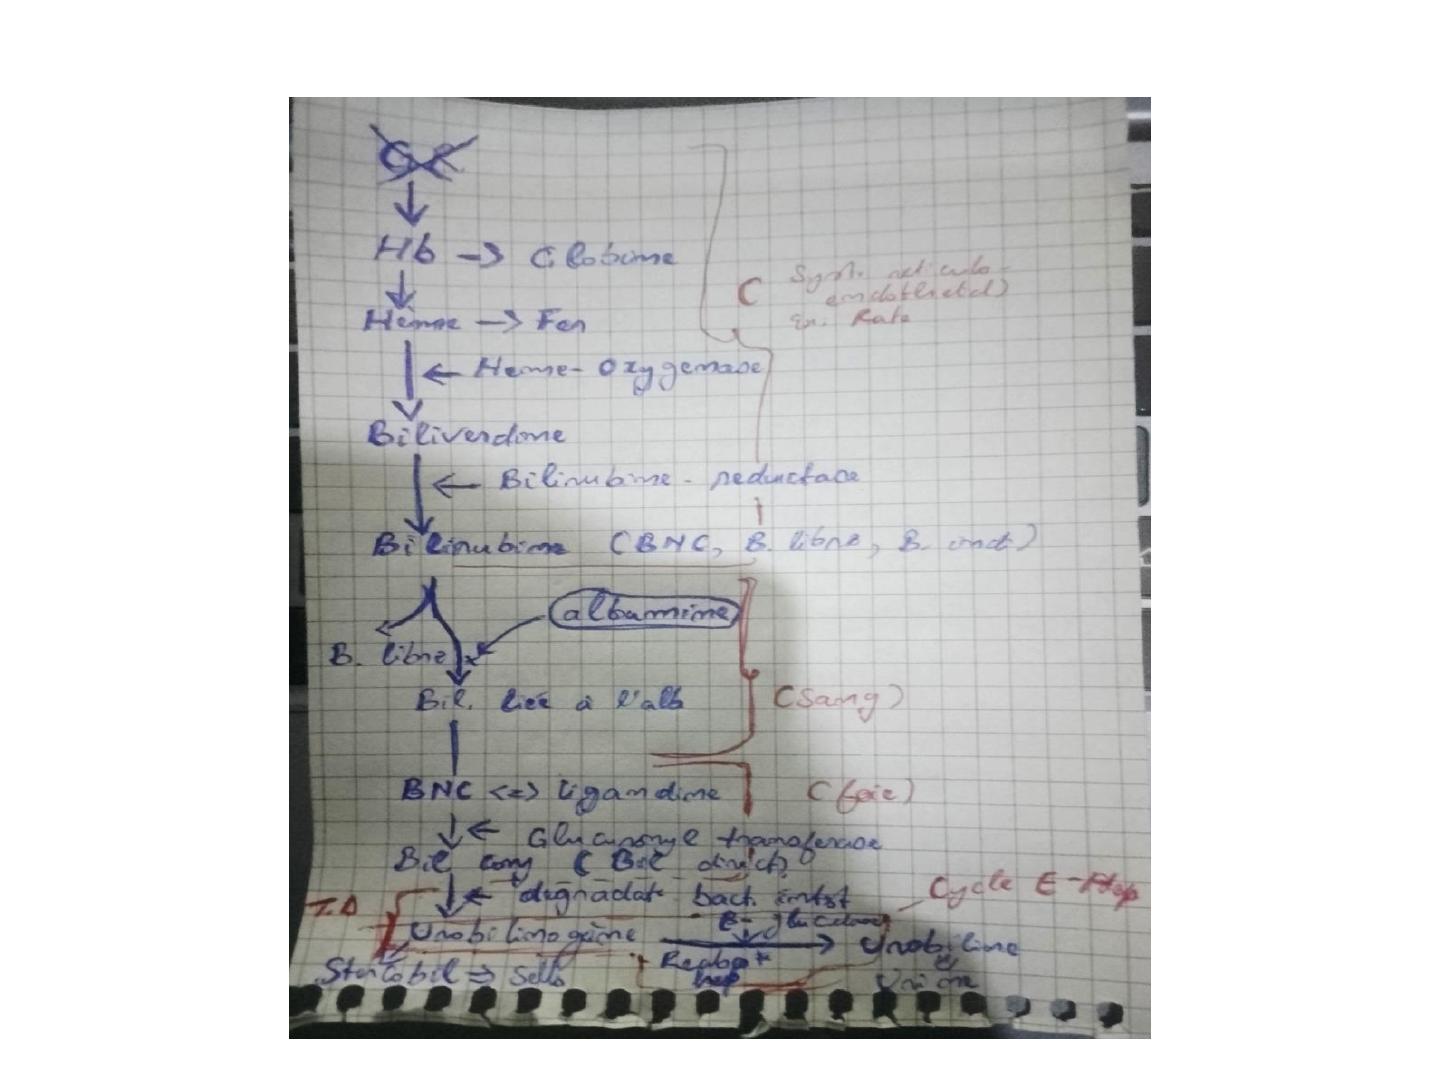 GR
Hb → Globine
(Syst. reticulo-
endothelial)
Ex. Rate
Hème → Fer
← Heme-Oxygenase
Biliverdine
← Bilirubine-reductase
Bilirubine (BNC, B. libre, B. indt)
albumine
B. libre
Bil. liée à l'alb
(Sang)
BNC <=> ligandine
(foie)
← Glucuronyl transferase
Bil conj (Bil direct)
← degradat° bact. intst
Cycle E-Hep
T.D
B-glucuron
Urobilinogène → Urobiline
Reabs°
hep
Stercobil => Selles
Urine